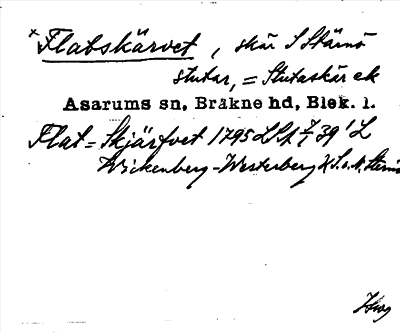 × Flatskärvet, skär S Stärnö
slutar, = Slutaskär ek
Asarums sn, Bräkne hd, Blek. l.
Flat = Skjärfvet 1795 LSA 39' L
Wickenberg-Westerberg